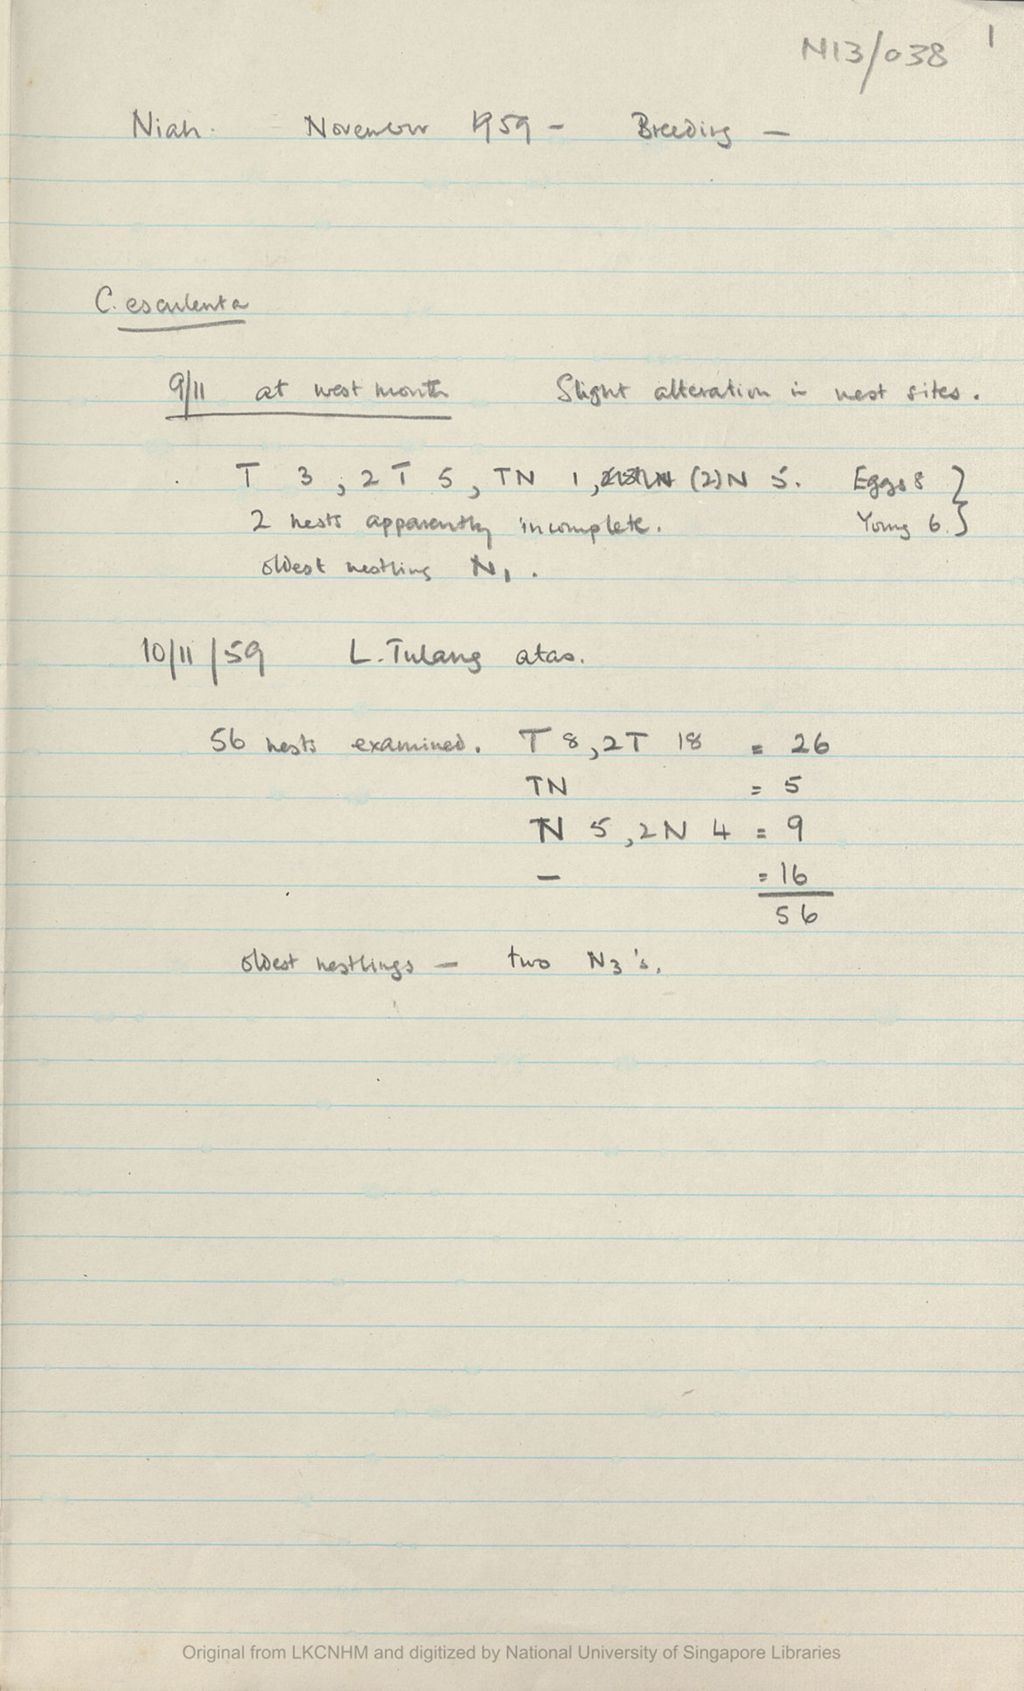 N13/038 1
Niah. - November 1959 - Breeding -
C. esculenta
9/11 at west mouth Slight alteration in nest sites.
T 3, 2 T 5, TN 1, (2)N 5. Eggs 8
2 nests apparently incomplete. Young 6.
oldest nestling N1.
10/11/59 L. Tulang atas.
56 nests examined. T 8, 2T 18 = 26
TN = 5
N 5, 2N 4 = 9
- = 16
56
oldest nestlings - two N3's.
Original from LKCNHM and digitized by National University of Singapore Libraries